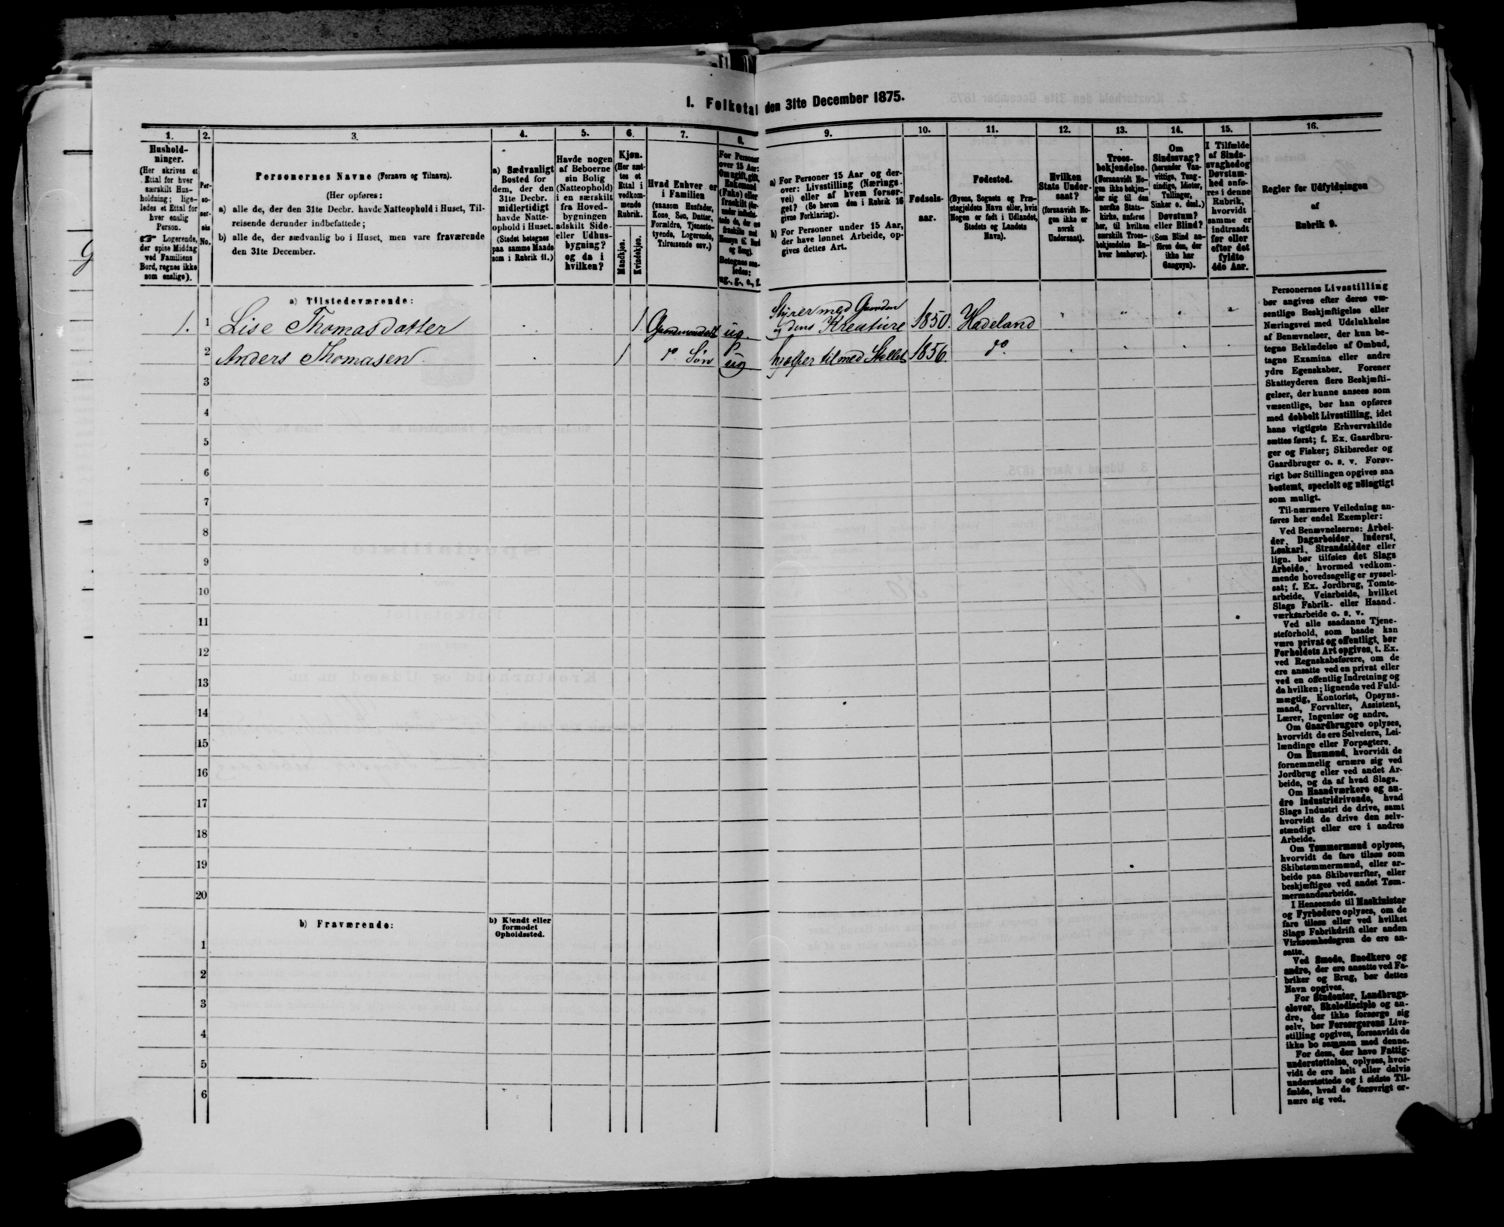 1. Folketal den 31te December 1875.
1. 2. 3. 4. 5. 6. 7. 8. 9. 10. 11. 12. 13. 14. 15. 16.
Hushold-
ninger.
(Her skrives et
Ettal for hver
særskilt Hus-
holdning; lige-
ledes et Ettal for
hver enslig
Person.
☞ Logerende,
der spise Middag
ved Familiens
Bord, regnes ikke
som enslige).
Per-
so-
ner-
nes
No.
Personernes Navne (Fornavn og Tilnavn).
(Her opføres:
a) alle de, der den 31te Decbr. havde Natteophold i Huset, Til-
reisende derunder indbefattede;
b) alle de, der sædvanlig bo i Huset, men vare fraværende
den 31te December.
a) Sædvanligt
Bosted for
dem, der den
31te Decbr.
midlertidigt
havde Natte-
ophold i Huset.
(Stedet betegnes
paa samme Maade
som i Rubrik 11.)
Havde nogen
af Beboerne
sin Bolig
(Natteophold)
i en særskilt
fra Hoved-
bygningen
adskilt Side-
eller Udhus-
bygning?
og da i
hvilken?
Kjøn.
(Her sæt-
tes et
Ettal i
vedkom-
mende
Rubrik.
Mandkjøn.
Kvindekjøn.
Hvad Enhver er
i Familien
(saasom Husfader,
Kone, Søn, Datter,
Forældre, Tjeneste-
tyende, Logerende,
Tilreisende osv.)
For Personer
over 15 Aar:
Om ugift, gift,
Enkemand
(Enke) eller
fraskilt
a) For Personer 15 Aar og der-
over: Livsstilling (Nærings-
vei) eller af hvem forsør-
get? (Se herom den i Rubrik 16
givne Forklaring).
b) For Personer under 15 Aar,
der have lønnet Arbeide, op-
gives dettes Art.
Fødsels-
aar.
Fødested.
(Byens, Sognets og Præ-
stegjeldets Navn eller, hvis
Nogen er født i Udlandet,
Stedets og Landets
Navn).
Hvilken
Stats Under-
saat?
(forsaavidt No-
gen ikke er
norsk
Undersaat).
Troes-
bekjendelse.
(Forsaavidt No-
gen ikke bekjen-
der sig til den
norske Stats-
kirke, anføres
her, til hvilken
særskilt Troes-
bekjendelse En-
hver henhører).
Om
Sindssvag?
(herunder Van-
vittige, Tung-
sindige, Idioter,
Tullinger,
Sinker o. desl.)
Døvstum?
eller Blind?
(Som Blind an-
føres den, der
ikke har
Gangsyn).
I Tilfælde
af Sinds-
svaghed og
Døvstum-
hed anfø-
res i denne
Rubrik,
hvorvidt
samme er
indtraadt
før eller
efter det
fyldte
4de Aar.
Regler for Udfyldningen
af
Rubrik 9.
a) Tilstedeværende:
1. 1 Lise Thomasdatter 1 ug Styrer med Gaarden og dens Kreature 1850. Hadeland
2 Anders Thomasen 1 do Søn ug hjælper til med Stellet 1856. do
3
4
5
6
7
8
9
10
11
12
13
14
15
16
17
18
19
20
b) Fraværende:
b) Kjendt eller
formodet
Opholdssted.
1
2
3
4
5
6
Personernes Livsstilling
bør angives efter deres væ-
sentlige Beskjæftigelse eller
Næringsvei med Udelukkelse
af Benævnelser, der kun be-
tegne Beklædelse af Ombud,
tagne Examina eller andre
ydre Egenskaber. Forener
Skatteyderen flere Beskjæfti-
gelser, der kunne ansees som
væsentlige, bør han opføres
med dobbelt Livsstilling, idet
hans vigtigste Erhvervskilde
sættes først; f. Ex. Gaardbru-
ger og Fisker; Skibsreder og
Gaardbruger o. s. v. Forøv-
rigt bør Stillingen opgives saa
bestemt, specielt og nøiagtigt
som muligt.
Til nærmere Veiledning an-
føres her endel Exempler:
Ved Benævnelserne: Arbei-
der, Dagarbeider, Inderst,
Løskarl, Strandsidder eller
lign. bør tilføies det Slags
Arbeide, hvormed vedkom-
mende hovedsagelig er syssel-
sat; f. Ex. Jordbrug, Tomte-
arbeide, Veiarbeide, hvilket
Slags Fabrik- eller Haand-
værksarbeide o. s. v.
Ved alle saadanne Tjene-
steforhold, som baade kan
være privat og offentligt, bør
Forholdets Art opgives, t. Ex.
ved Regnskabsførere, om de
ere ansatte ved en privat eller
ved en offentlig Indretning og
da hvilken; lignende ved Fuld-
mægtig, Kontorist, Opsyns-
mand, Forvalter, Assistent,
Lærer, Ingeniør og andre.
Om Gaardbrugere oplyses,
hvorvidt de ere Selveiere, Lei-
lændinge eller Forpagtere.
Om Husmænd, hvorvidt de
fornemmelig ernære sig ved
Jordbrug eller ved andet Ar-
beide, og da af hvad Slags.
Om Haandværkere og an-
dre Industridrivende, hvad
Slags Industri de drive, samt
hvorvidt de drive den selv-
stændigt eller ere i andres
Arbeide.
Om Tømmermænd oplyses,
hvorvidt de fare tilsøs som
Skibstømmermænd, eller ar-
beide paa Skibsværfter, eller
beskjæftiges ved andet Tøm-
mermandsarbeide.
I Henseende til Maskinister
og Fyrbødere oplyses, om de
fare tilsøs eller ved hvilket
Slags Fabrikdrift eller anden
Virksomhedsgren de ere an-
satte.
Ved Smede, Snedkere og
andre, der ere ansatte ved Fa-
briker og Brug, bør dettes
Navn opgives.
For Studenter, Landbrugs-
elever, Skoledisciple og an-
dre, der ikke forsørge sig
selv, bør Forsørgerens Livs-
stilling opgives, forsaavidt de
ikke bo sammen med denne.
For dem, der have Fattig-
understøttelse, oplyses, hvor-
vidt de ere helt eller delvis
understøttede og i sidste Til-
fælde, hvad de forøvrigt er-
nære sig ved.